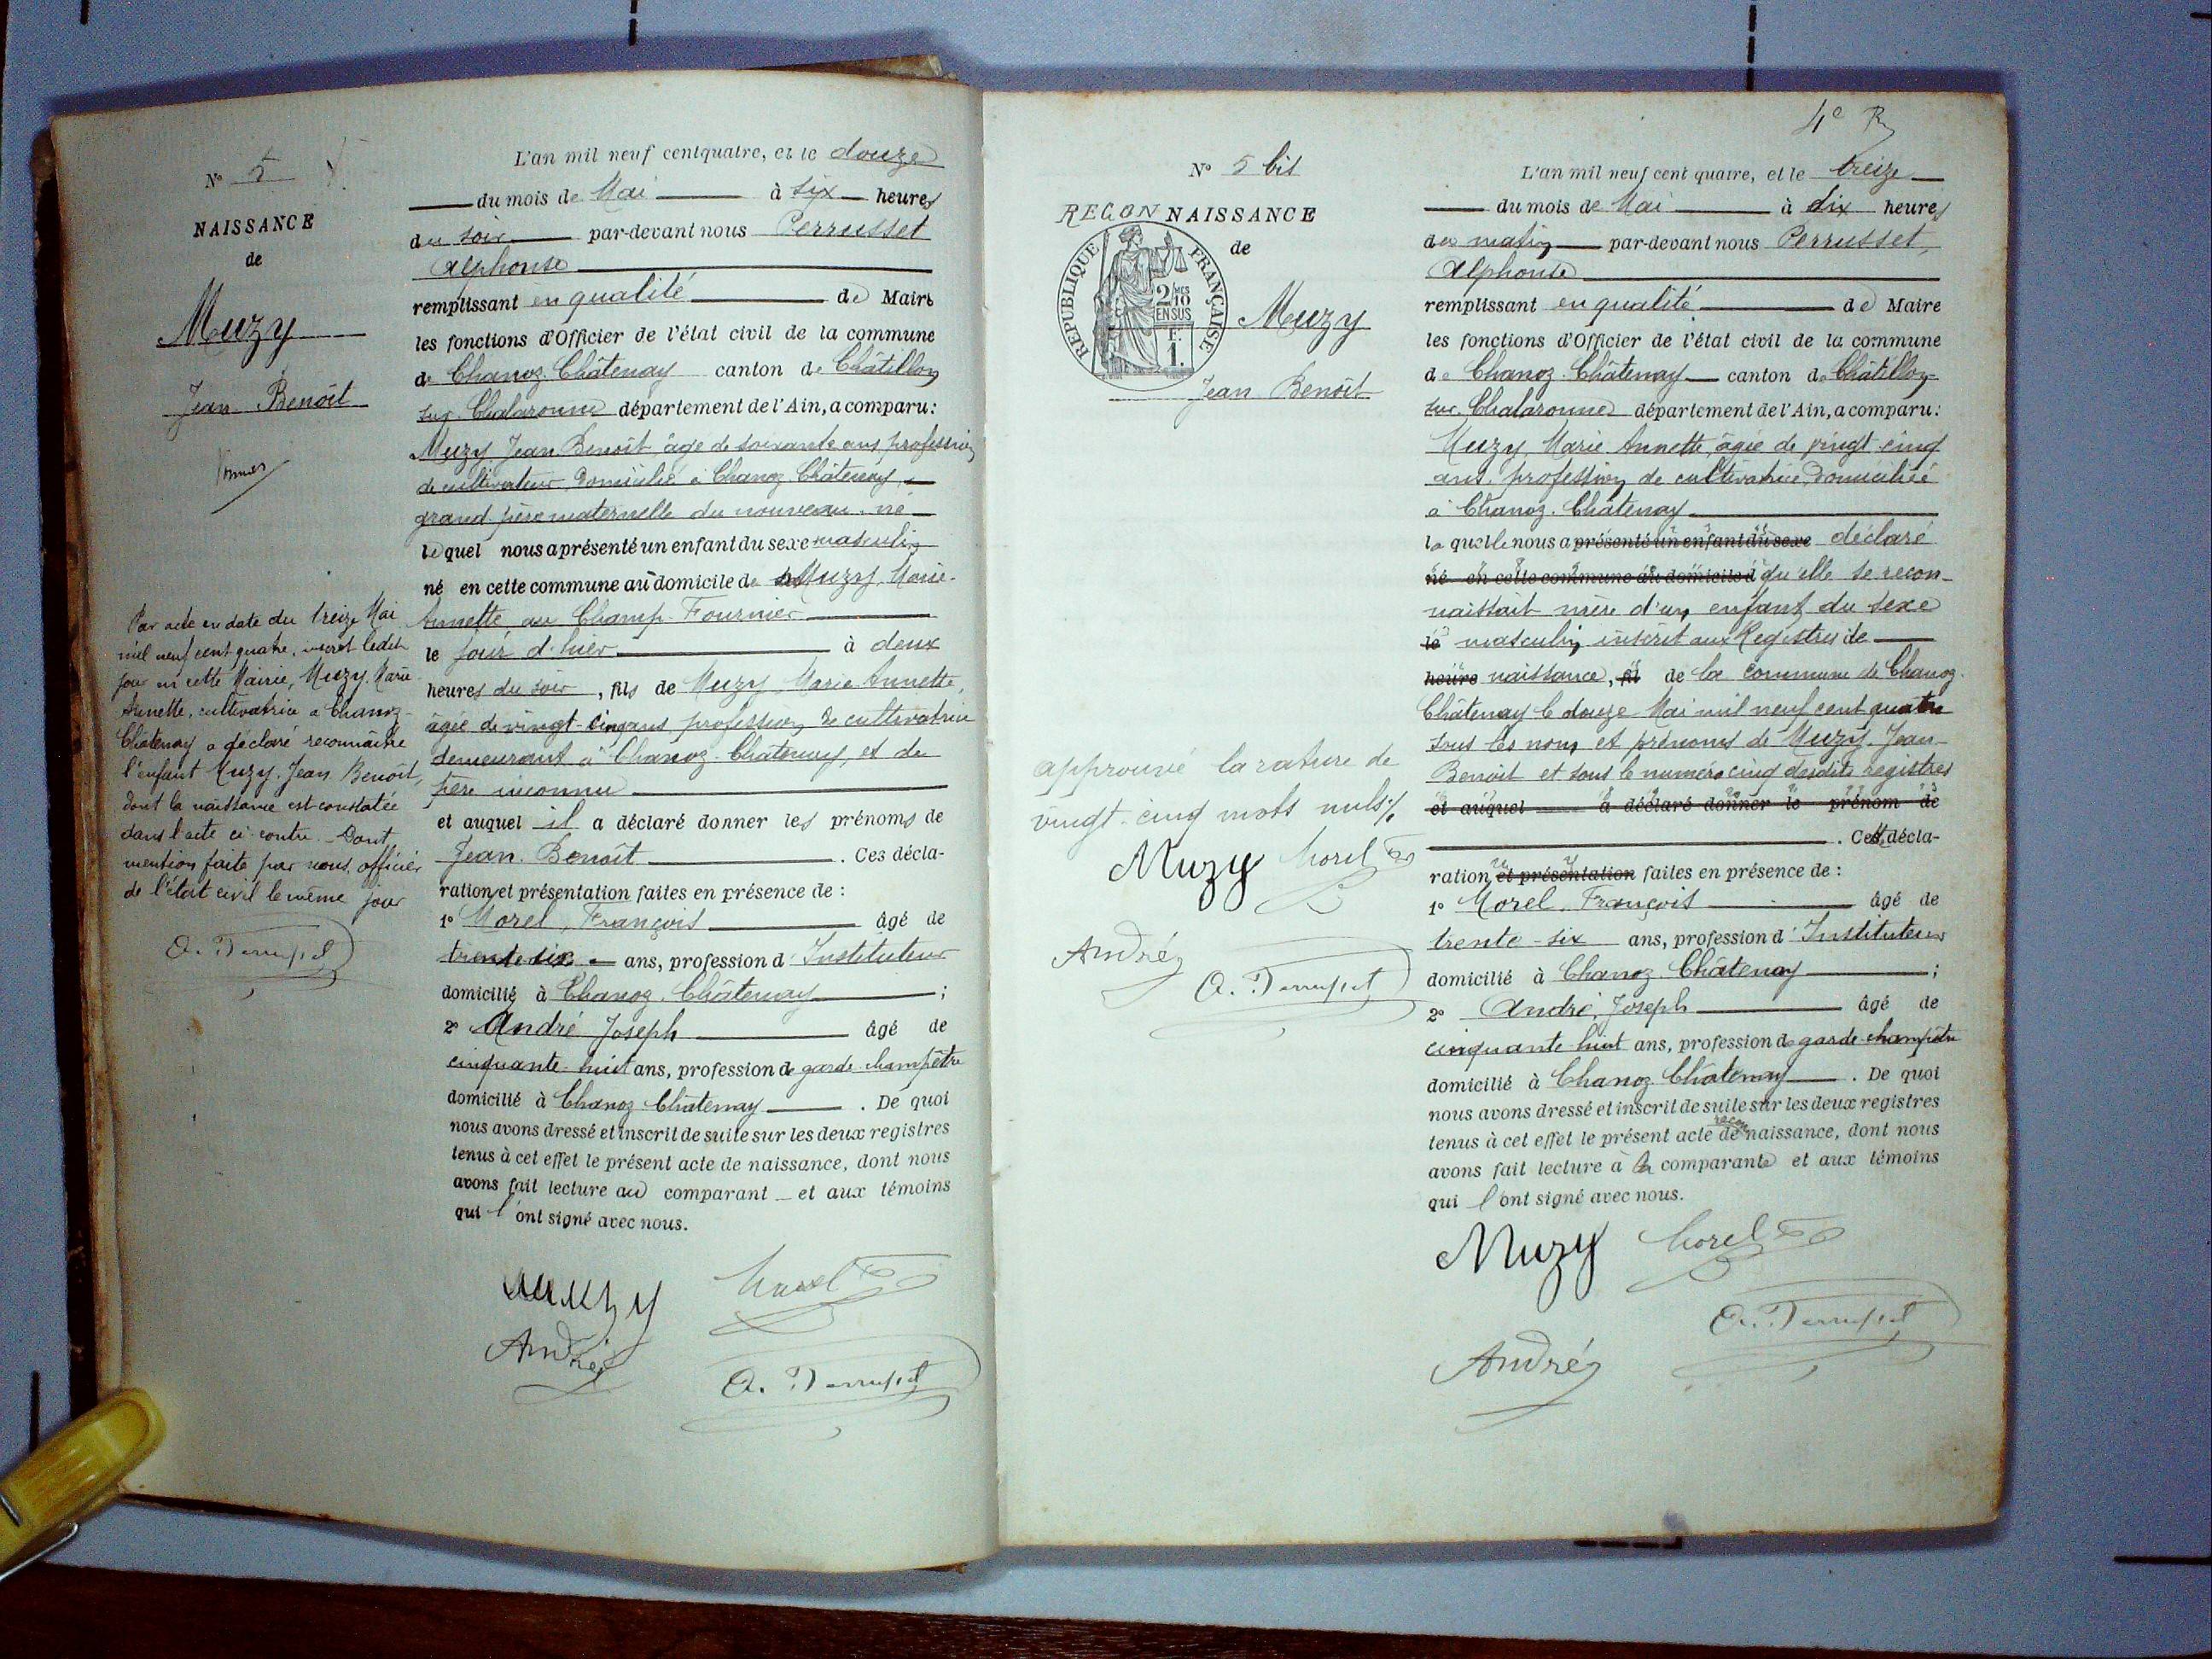 N° 5
NAISSANCE
de
Muzy
Jean Benoît
Par acte en date du treize Mai
mil neuf cent quatre, inscrit ledit
jour en cette Mairie, Muzy Marie
Annette, cultivatrice à Chanoz-
Châtenay a déclaré reconnaitre
l'enfant Muzy Jean Benoit,
dont la naissance est constatée
dans l'acte ci-contre. Dont
mention faite par nous officier
de l'état civil le même jour
A. Perrusset
L'an mil neuf cent quatre, et le douze
du mois de Mai à six heures
du soir par-devant nous Perrusset
Alphonse
remplissant en qualité de Maire
les fonctions d'Officier de l'état civil de la commune
de Chanoz-Châtenay canton de Châtillon
sur Chalaronne département de l'Ain, a comparu:
Muzy Jean Benoît âgé de soixante ans profession
de cultivateur domicilié à Chanoz-Châtenay
grand père maternelle du nouveau-né
lequel nous a présenté un enfant du sexe masculin
né en cette commune au domicile de Muzy, Marie-
Annette au Champ-Fournier
le jour d'hier à deux
heures du soir, fils de Muzy, Marie Annette,
âgée de vingt-cinq ans profession de cultivatrice
demeurant à Chanoz-Châtenay, et de
père inconnu
et auquel il a déclaré donner les prénoms de
Jean Benoît. Ces décla-
ration et présentation faites en présence de :
1° Morel, François âgé de
trente six ans, profession d'Instituteur
domicilié à Chanoz-Châtenay ;
2° André Joseph âgé de
cinquante-huit ans, profession de garde-champêtre
domicilié à Chanoz-Châtenay. De quoi
nous avons dressé et inscrit de suite sur les deux registres
tenus à cet effet le présent acte de naissance, dont nous
avons fait lecture au comparant et aux témoins
qui l'ont signé avec nous.
Muzy Morel
André
A. Perrusset
4e R
N° 5 bis
RECON NAISSANCE
de
RÉPUBLIQUE FRANÇAISE
2/10 MES
EN SUS
F.
1.
Muzy
Jean Benoît
approuvé la rature de
vingt-cinq mots nuls
Muzy Morel
André
A. Perrusset
L'an mil neuf cent quatre, et le treize
du mois de Mai à dix heures
du matin par-devant nous Perrusset,
Alphonse
remplissant en qualité de Maire
les fonctions d'Officier de l'état civil de la commune
de Chanoz-Châtenay canton de Châtillon
sur Chalaronne département de l'Ain, a comparu:
Muzy, Marie Annette, âgée de vingt-cinq
ans profession de cultivatrice domiciliée
à Chanoz-Châtenay
laquelle nous a présenté un enfant du sexe déclaré
né en cette commune au domicile d qu'elle se recon-
naissait mère d'un enfant du sexe
le masculin inscrit aux Registres de
heure naissance, fil de la commune de Chanoz-
Châtenay le douze Mai mil neuf cent quatre
sous les nom et prénoms de Muzy, Jean-
Benoit et sous le numéro cinq desdits registres
et auquel a déclaré donner le prénom de
. Cette décla-
ration et présentation faites en présence de :
1° Morel, François âgé de
trente-six ans, profession d'Instituteur
domicilié à Chanoz-Châtenay ;
2° André, Joseph âgé de
cinquante-huit ans, profession de garde-champêtre
domicilié à Chanoz-Châtenay. De quoi
nous avons dressé et inscrit de suite sur les deux registres
tenus à cet effet le présent acte de reconnaissance, dont nous
avons fait lecture à la comparante et aux témoins
qui l'ont signé avec nous.
Muzy Morel
A. Perrusset
André